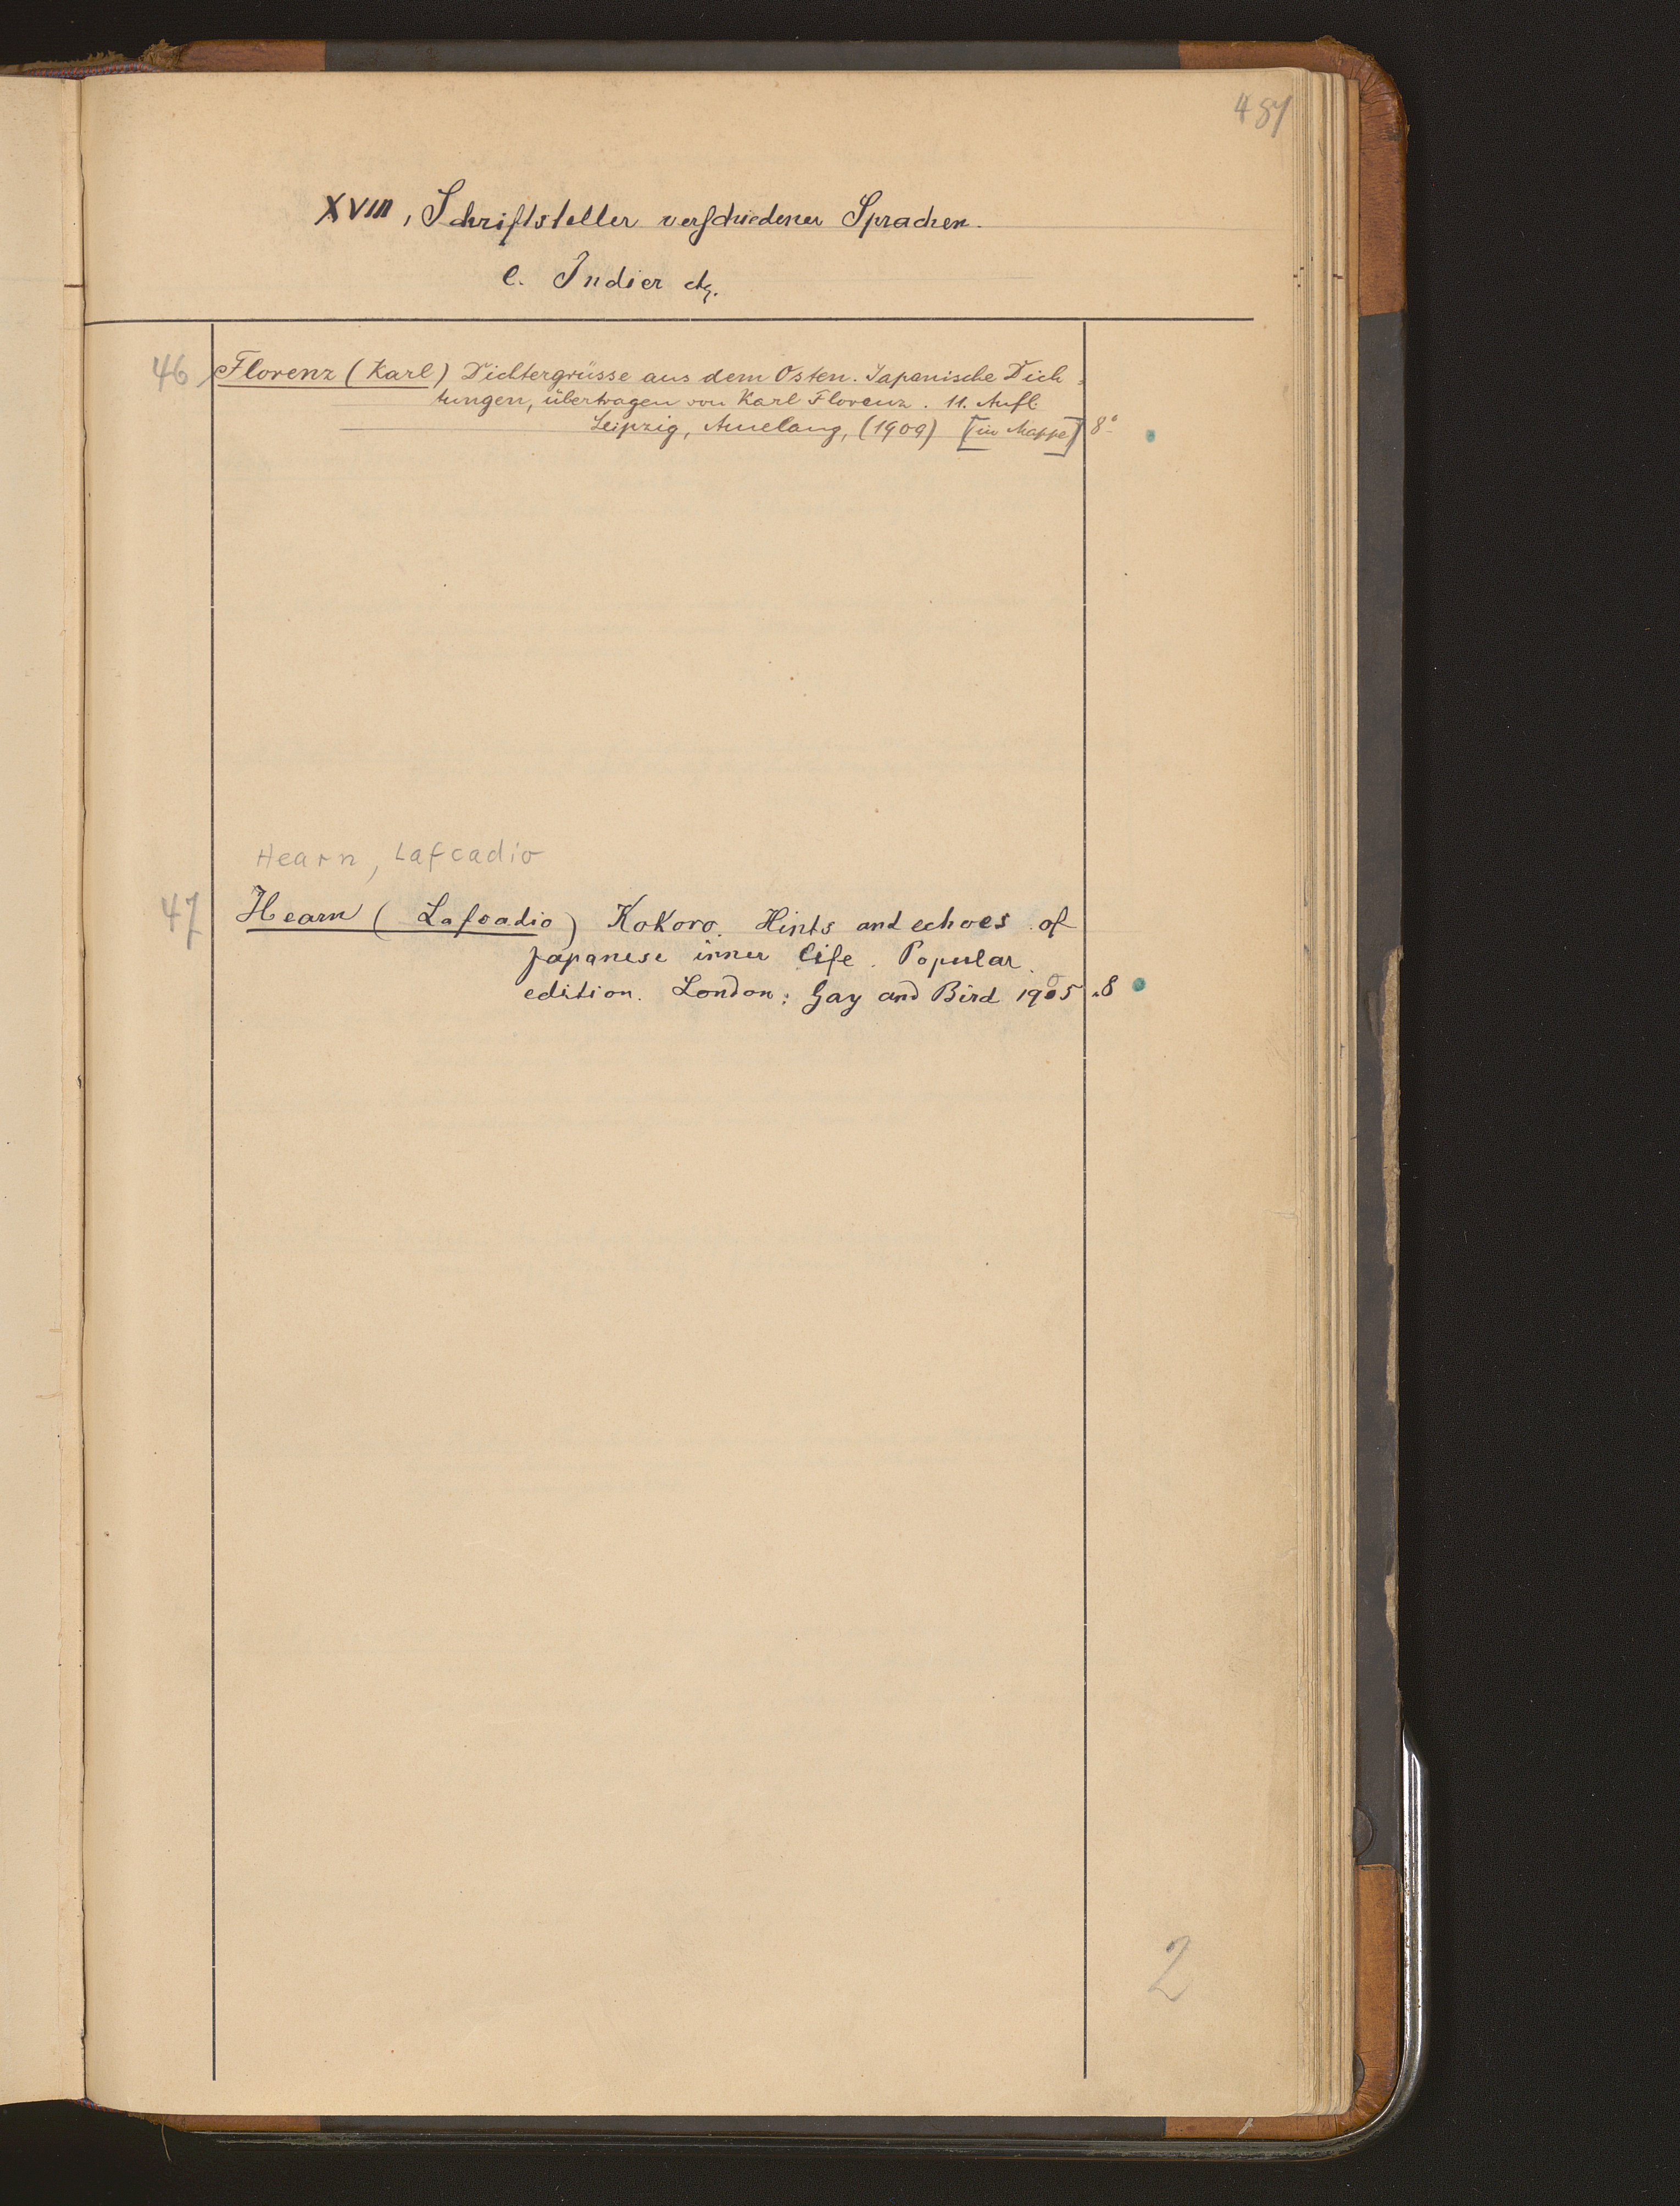 487
XVIII, Schriftsteller verschiedener Sprachen.
e. Indier etc.
46 Florenz (Karl) Dichtergrüsse aus dem Osten. Japanische Dich-
tungen, übertragen von Karl Florenz. 11. Aufl.
Leipzig, Amelang, (1909) [in Mappe] 8°
Hearn, Lafcadio
47 Hearn (Lafcadio) Kokoro. Hints and echoes of
japanese inner life. Popular
edition. London: Gay and Bird 1905 8
2